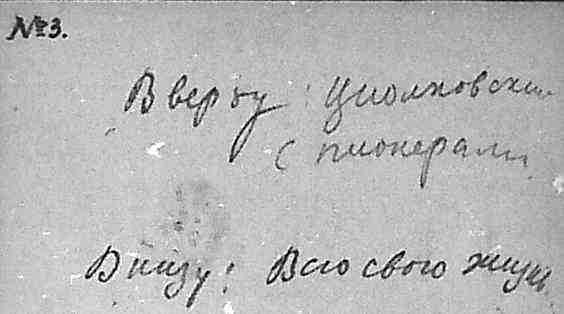 №3.
Вверху: Циолковский
с пионерами
Внизу: Всю свою жизнь